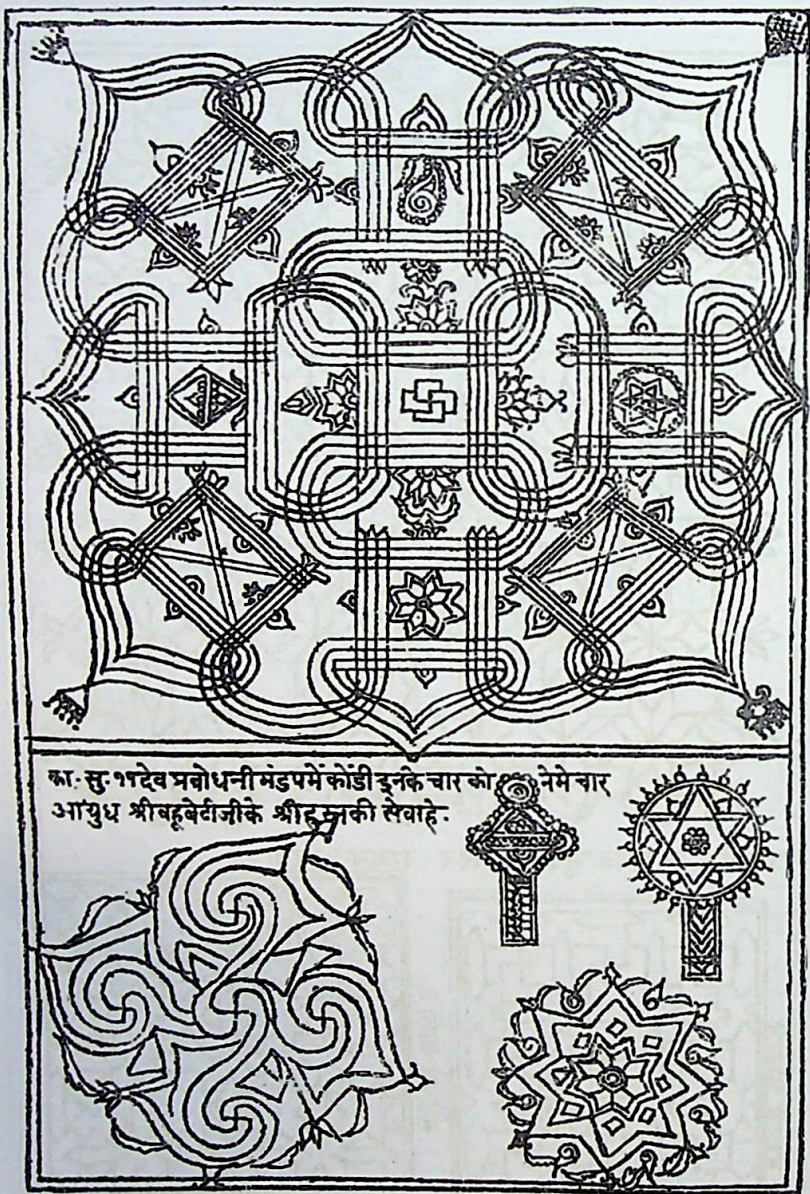 का. सु. ११ देव प्रबोधनी मंडपमें कोंडी इनके चार को नेमे चार
आयुध श्रीबहूबेटीजीके की सेवाहे.